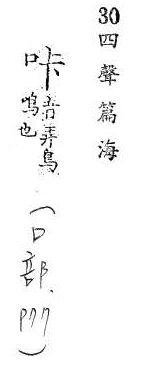 30四聲篇海
咔音弄鳥鳴也(口部、P77)